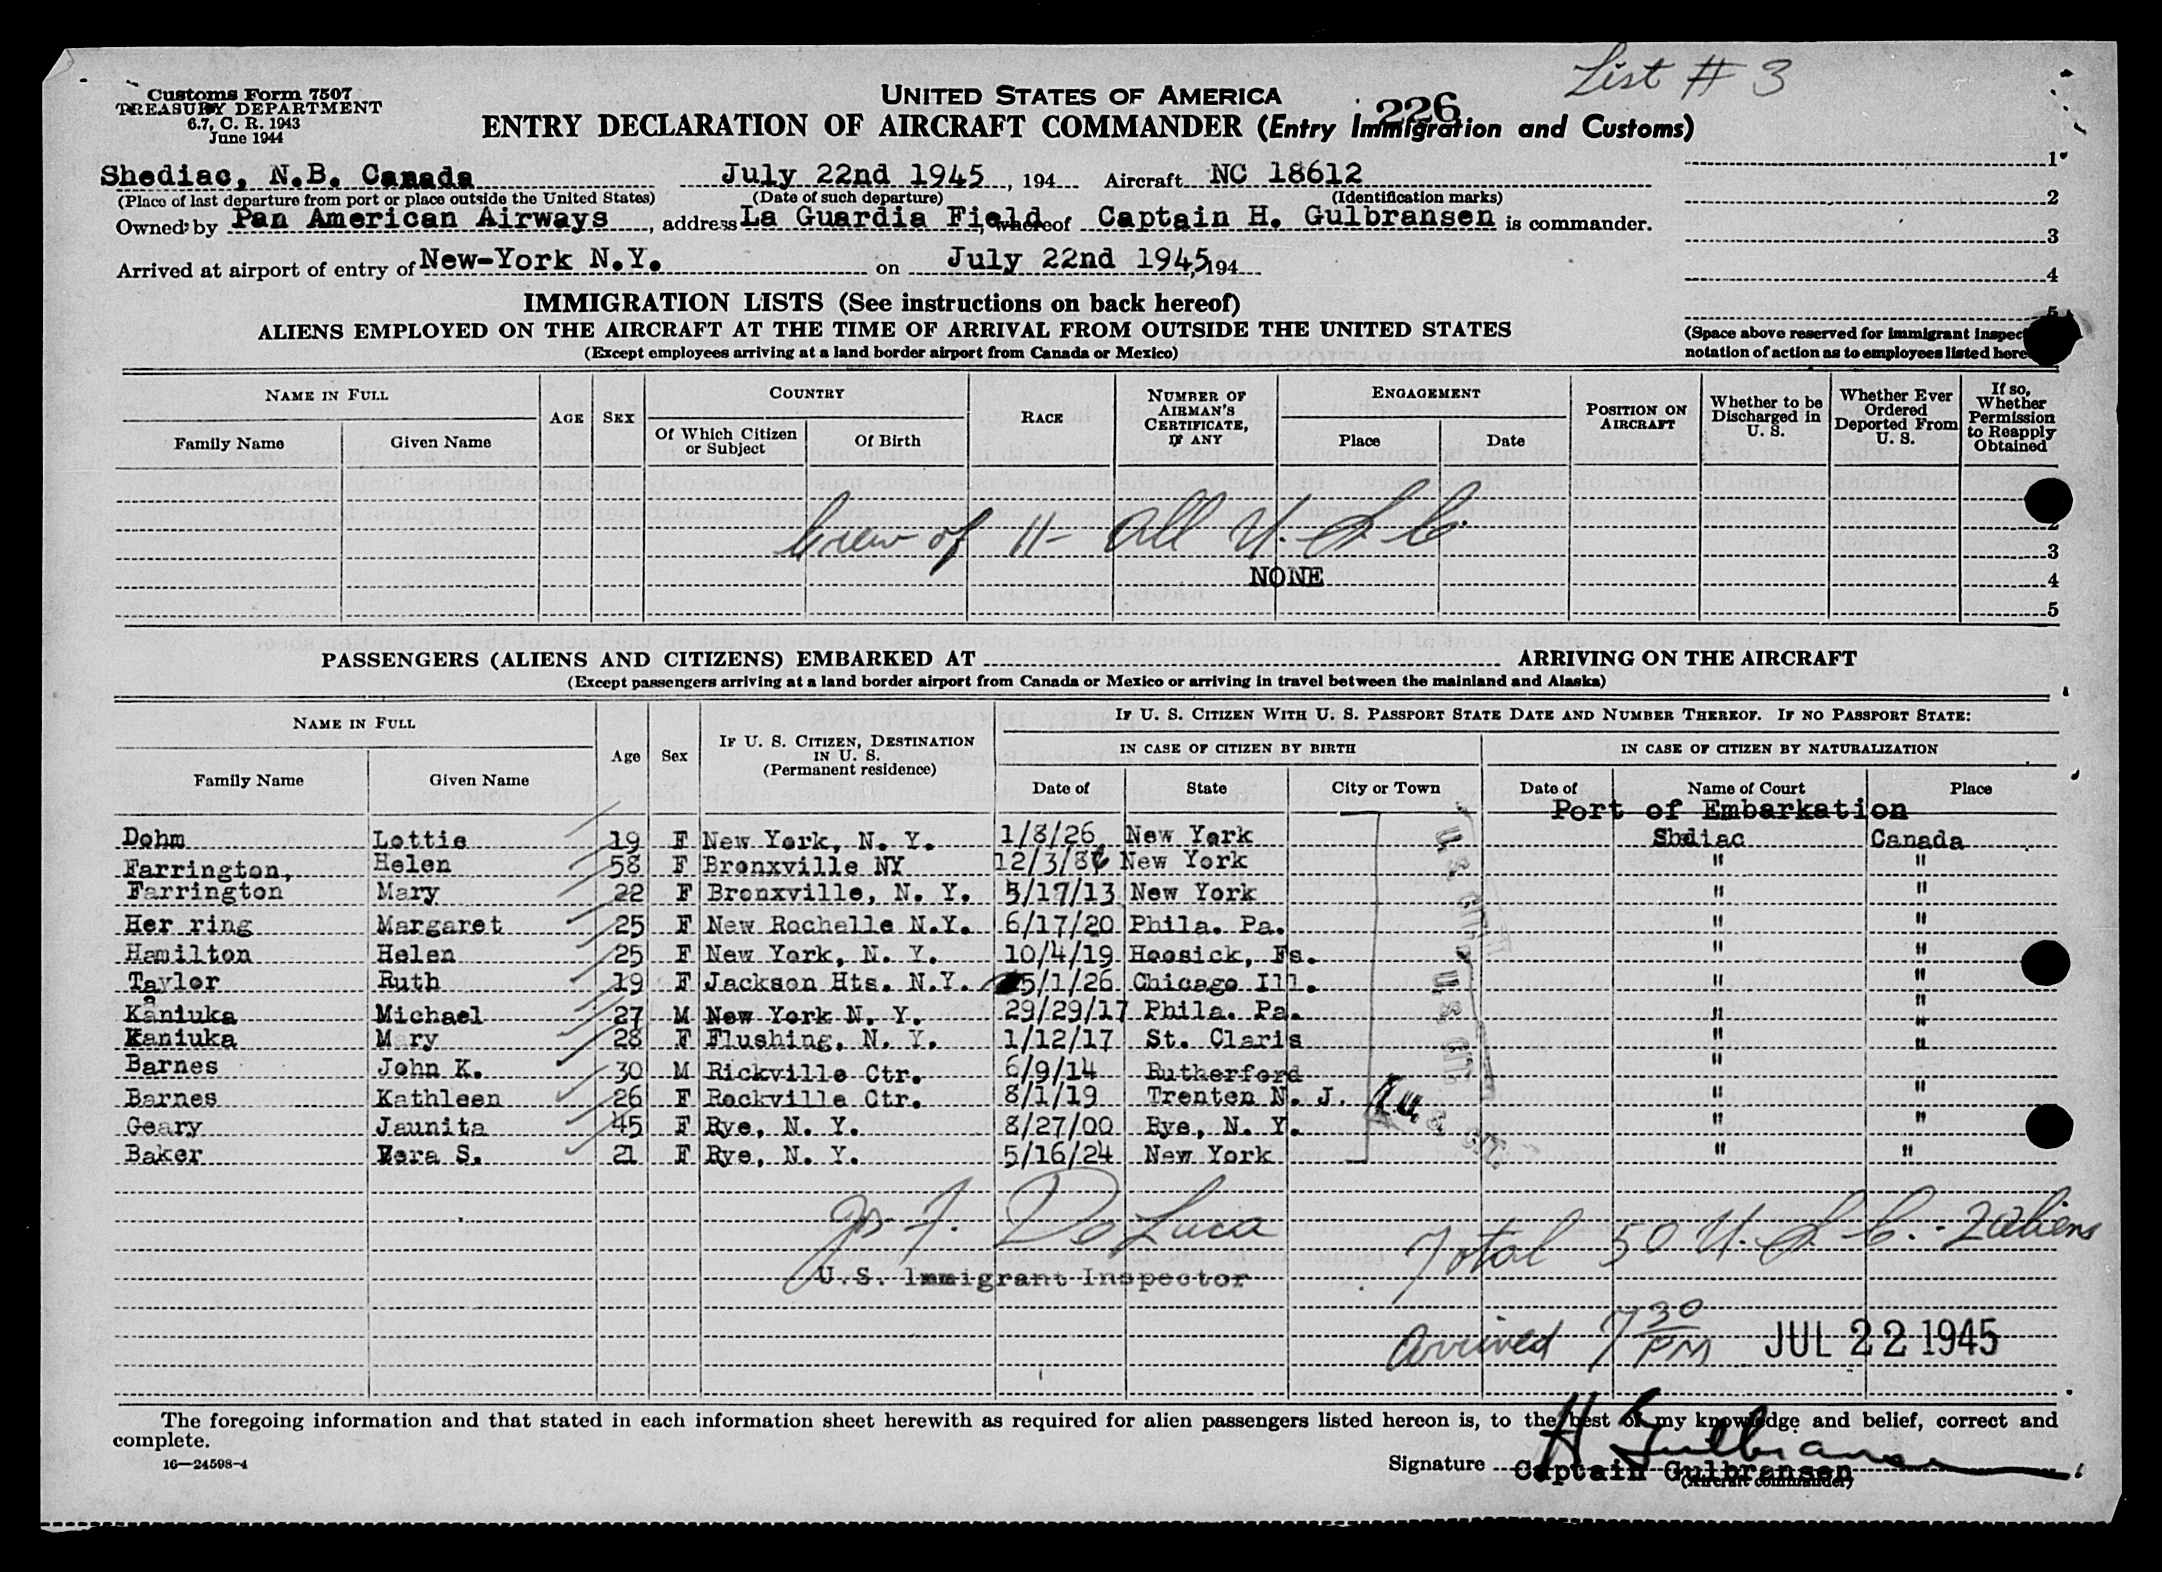 List # 3
Customs Form 7507
TREASURY DEPARTMENT
6.7, C. R. 1943
June 1944
UNITED STATES OF AMERICA
226
ENTRY DECLARATION OF AIRCRAFT COMMANDER (Entry Immigration and Customs)
Shediac, N.B. Canada July 22nd 1945, 194 Aircraft NC 18612
(Place of last departure from port or place outside the United States) (Date of such departure) (Identification marks)
Owned by Pan American Airways, address La Guardia Field, whereof Captain H. Gulbransen is commander.
Arrived at airport of entry of New-York N.Y. on July 22nd 1945, 194
1
2
3
4
5
IMMIGRATION LISTS (See instructions on back hereof)
ALIENS EMPLOYED ON THE AIRCRAFT AT THE TIME OF ARRIVAL FROM OUTSIDE THE UNITED STATES
(Except employees arriving at a land border airport from Canada or Mexico)
(Space above reserved for immigrant inspec
notation of action as to employees listed here
NAME IN FULL
Family Name Given Name
AGE SEX
COUNTRY
Of Which Citizen or Subject Of Birth
RACE
NUMBER OF AIRMAN'S CERTIFICATE, IF ANY
ENGAGEMENT
Place Date
POSITION ON AIRCRAFT
Whether to be Discharged in U. S.
Whether Ever Ordered Deported From U. S.
If so, Whether Permission to Reapply Obtained
2
Crew of 11- All U.S.C. 3
NONE 4
5
PASSENGERS (ALIENS AND CITIZENS) EMBARKED AT ARRIVING ON THE AIRCRAFT
(Except passengers arriving at a land border airport from Canada or Mexico or arriving in travel between the mainland and Alaska)
NAME IN FULL
Family Name Given Name
Age Sex
IF U. S. CITIZEN, DESTINATION IN U. S. (Permanent residence)
IF U. S. CITIZEN WITH U. S. PASSPORT STATE DATE AND NUMBER THEREOF. IF NO PASSPORT STATE:
IN CASE OF CITIZEN BY BIRTH IN CASE OF CITIZEN BY NATURALIZATION
Date of State City or Town Date of Name of Court Place
Port of Embarkation
Dohm Lottie 19 F New York, N. Y. 1/8/26 New York Shdiac Canada
Farrington, Helen 58 F Bronxville NY 12/3/8 New York " "
Farrington Mary 22 F Bronxville, N. Y. 5/17/13 New York " "
Her ring Margaret 25 F New Rochelle N.Y. 6/17/20 Phila. Pa. " "
Hamilton Helen 25 F New York, N. Y. 10/4/19 Hoosick, Fs. " "
Taylor Ruth 19 F Jackson Hts. N.Y. 5/1/26 Chicago Ill. " "
Kaniuka Michael 27 M New York N. Y. 29/29/17 Phila. Pa. " "
Kaniuka Mary 28 F Flushing, N. Y. 1/12/17 St. Claris " "
Barnes John K. 30 M Rickville Ctr. 6/9/14 Rutherford "
Barnes Kathleen 26 F Rockville Ctr. 8/1/19 Trenten N. J. " "
Geary Jaunita 45 F Rye, N. Y. 8/27/00 Rye, N. Y. " "
Baker Vera S. 21 F Rye, N. Y. 5/16/24 New York " "
Jos F. DeLuca
U.S. Immigrant Inspector
Total 50 U.S.C. - 2 aliens
Arrived 7 30 PM JUL 22 1945
The foregoing information and that stated in each information sheet herewith as required for alien passengers listed hereon is, to the best of my knowledge and belief, correct and
complete.
H Gulbransen
Signature Captain Gulbransen
(Aircraft commander)
16—24598-4